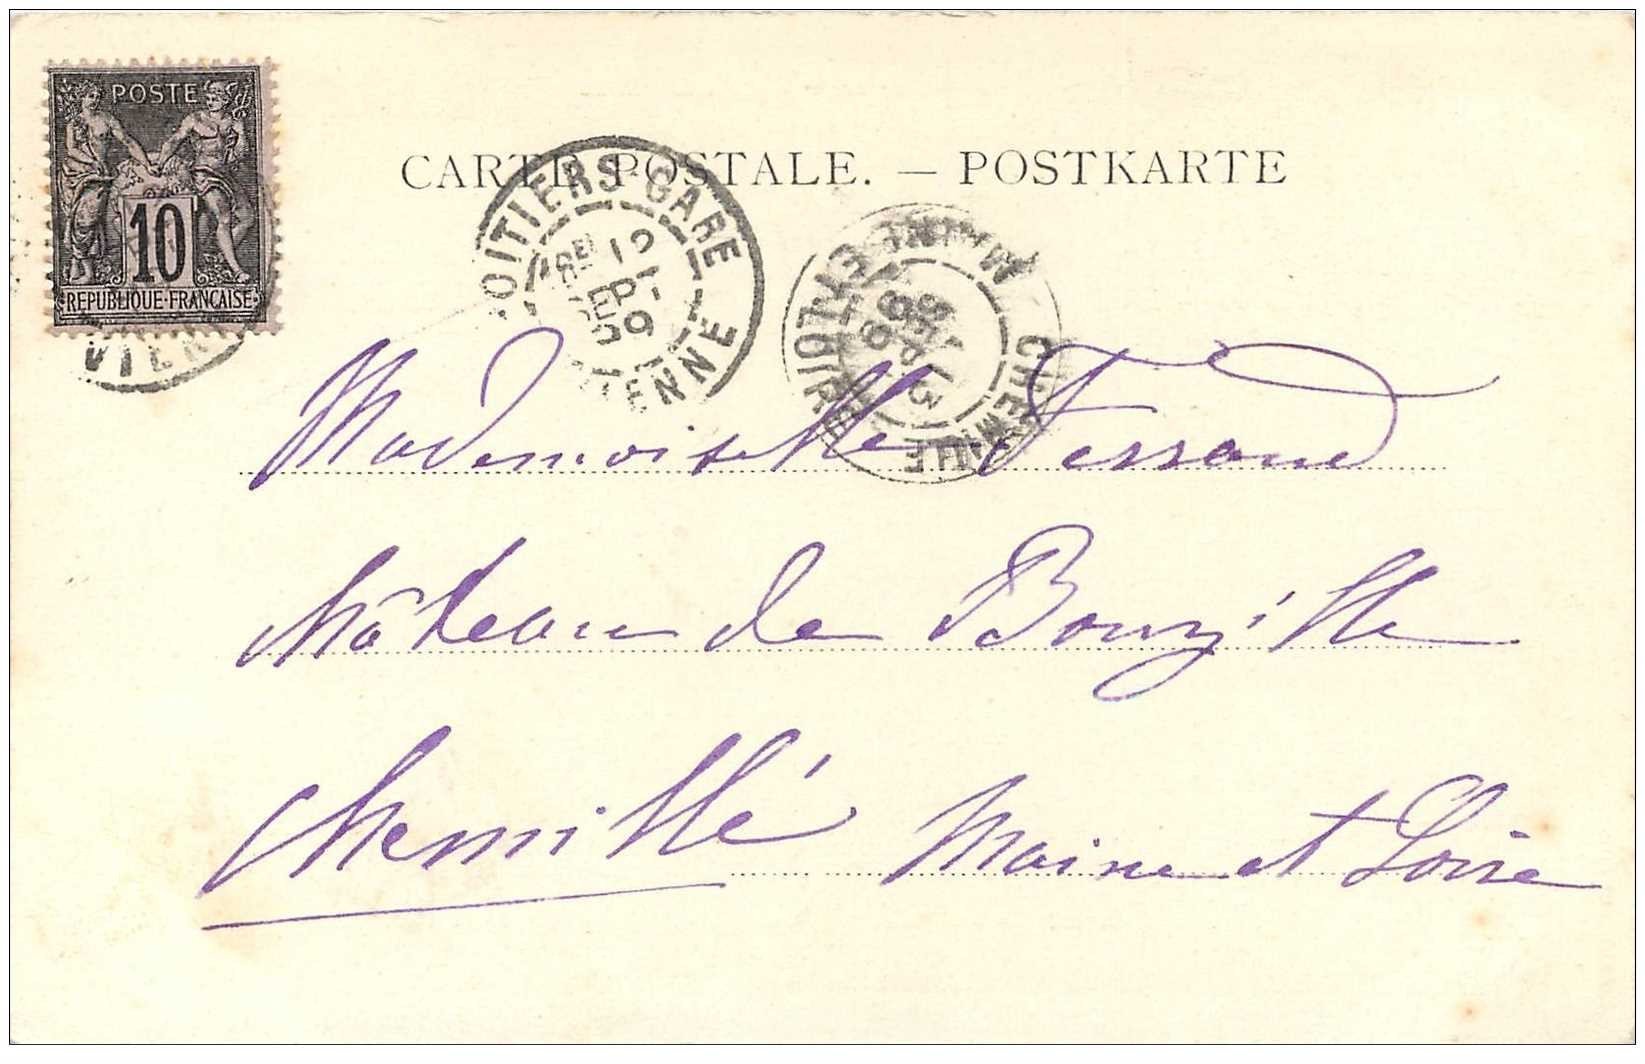 POSTE
10
REPUBLIQUE FRANÇAISE
CARTE POSTALE. — POSTKARTE
POITIERS-GARE
VIENNE
12
SEPT
CHEMILLE
MAINE ET LOIRE
Mademoiselle Ferrand
Château de Bouzillé
Chemillé Maine et Loire